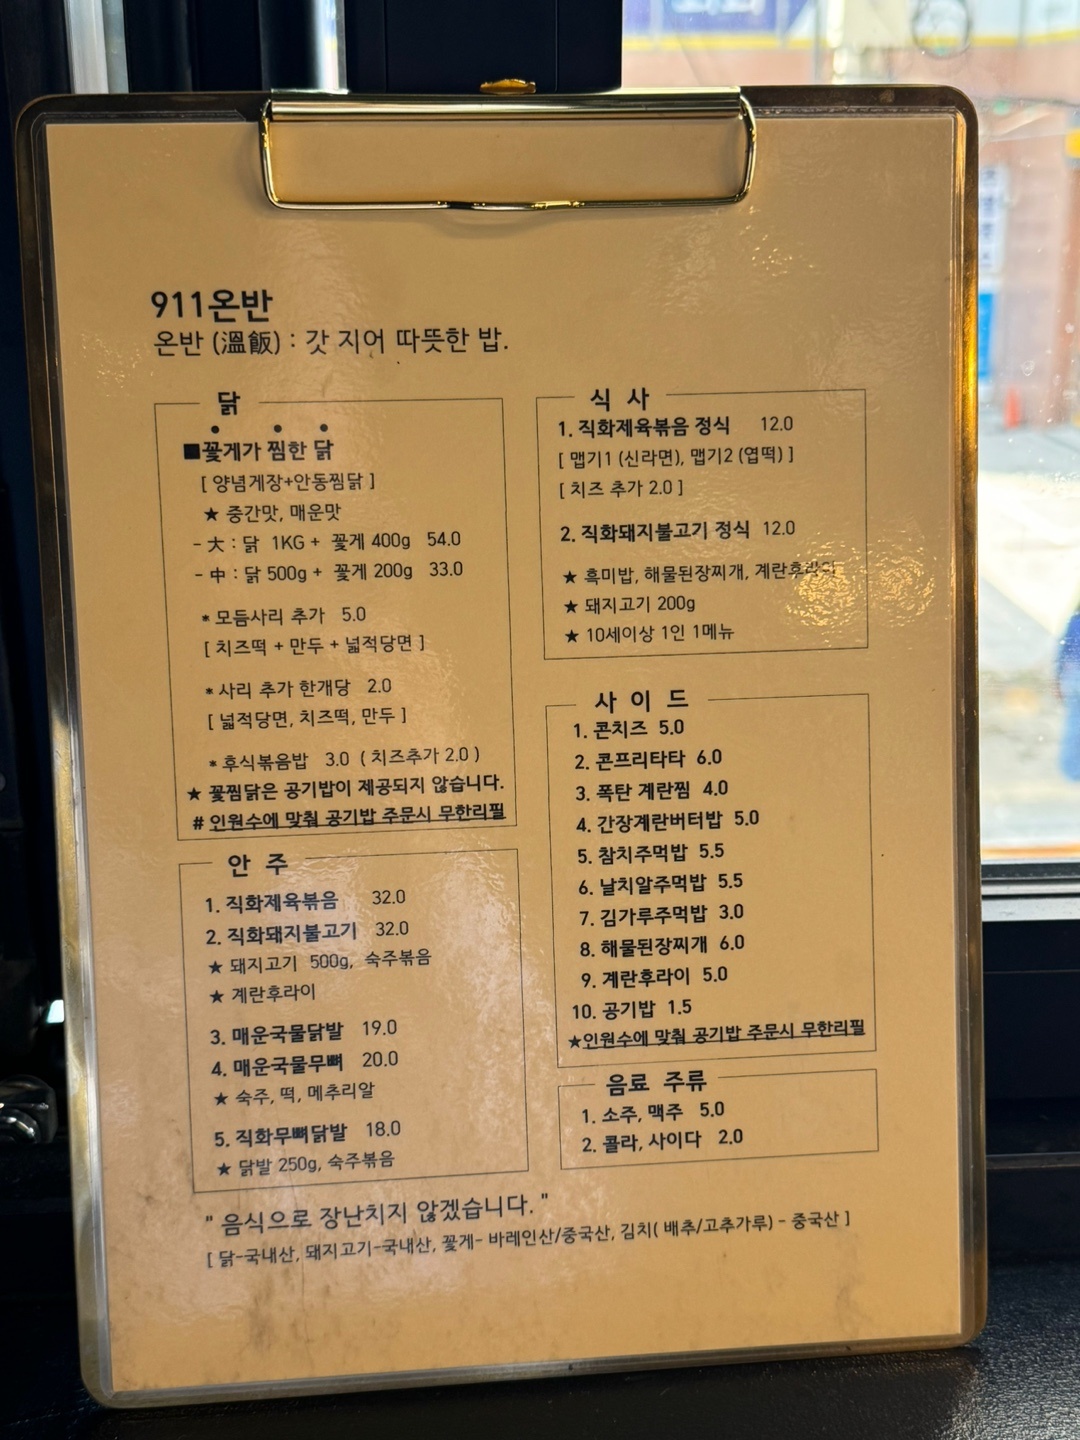 911온반
온반 (溫飯) : 갓 지어 따뜻한 밥.
닭
■꽃게가 찜한 닭
[ 양념게장+안동찜닭 ]
★ 중간맛, 매운맛
- 大 : 닭 1KG + 꽃게 400g 54.0
- 中 : 닭 500g + 꽃게 200g 33.0
* 모듬사리 추가 5.0
[ 치즈떡 + 만두 + 넓적당면 ]
* 사리 추가 한개당 2.0
[ 넓적당면, 치즈떡, 만두 ]
* 후식볶음밥 3.0 ( 치즈추가 2.0 )
★ 꽃찜닭은 공기밥이 제공되지 않습니다.
# 인원수에 맞춰 공기밥 주문시 무한리필
안 주
1. 직화제육볶음 32.0
2. 직화돼지불고기 32.0
★ 돼지고기 500g, 숙주볶음
★ 계란후라이
3. 매운국물닭발 19.0
4. 매운국물무뼈 20.0
★ 숙주, 떡, 메추리알
5. 직화무뼈닭발 18.0
★ 닭발 250g, 숙주볶음
식 사
1. 직화제육볶음 정식 12.0
[ 맵기1 (신라면), 맵기2 (엽떡) ]
[ 치즈 추가 2.0 ]
2. 직화돼지불고기 정식 12.0
★ 흑미밥, 해물된장찌개, 계란후라이
★ 돼지고기 200g
★ 10세이상 1인 1메뉴
사 이 드
1. 콘치즈 5.0
2. 콘프리타타 6.0
3. 폭탄 계란찜 4.0
4. 간장계란버터밥 5.0
5. 참치주먹밥 5.5
6. 날치알주먹밥 5.5
7. 김가루주먹밥 3.0
8. 해물된장찌개 6.0
9. 계란후라이 5.0
10. 공기밥 1.5
★인원수에 맞춰 공기밥 주문시 무한리필
음료 주류
1. 소주, 맥주 5.0
2. 콜라, 사이다 2.0
" 음식으로 장난치지 않겠습니다. "
[ 닭-국내산, 돼지고기-국내산, 꽃게- 바레인산/중국산, 김치( 배추/고추가루) - 중국산 ]